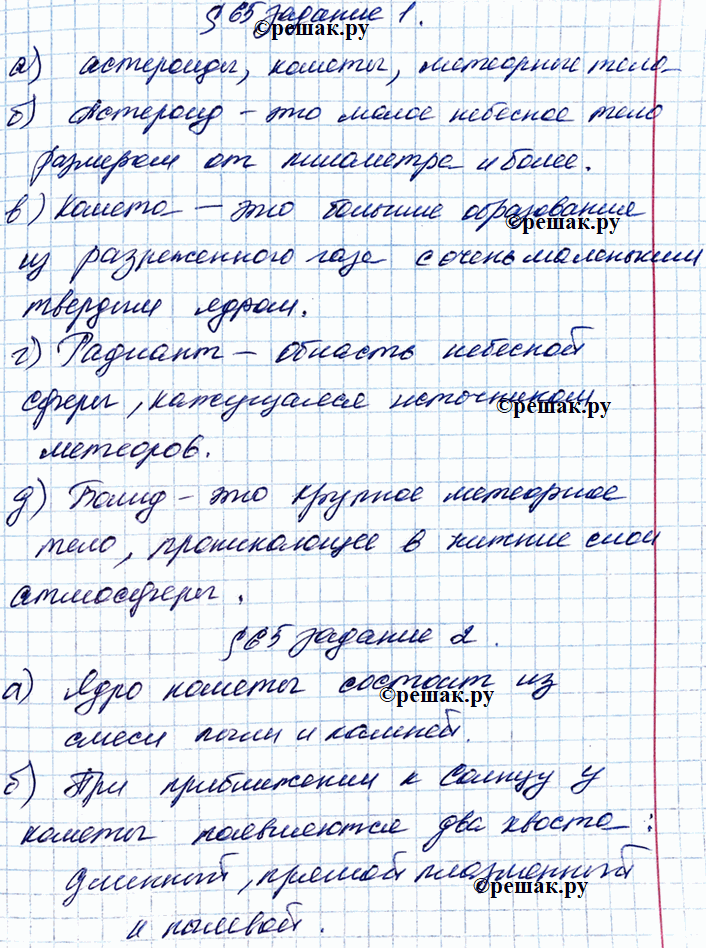 § 65 задание 1.
©решак.ру
а) астероиды, кометы, метеорные тела
б) Астероид – это малое небесное тело
размером от километра и более.
в) Комета – это большие образования
©решак.ру
из разреженного газа с очень маленьким
твердым ядром.
г) Радиант – область небесной
сферы, кажущаяся источником
©решак.ру
метеоров.
д) Болид – это крупное метеорное
тело, проникающее в нижние слои
атмосферы.
§ 65 задание 2.
а) Ядро кометы состоит из
©решак.ру
смеси пыли и камней.
б) При приближении к Солнцу у
кометы появляются два хвоста:
длинный, прямой плазменный
©решак.ру
и пылевой.